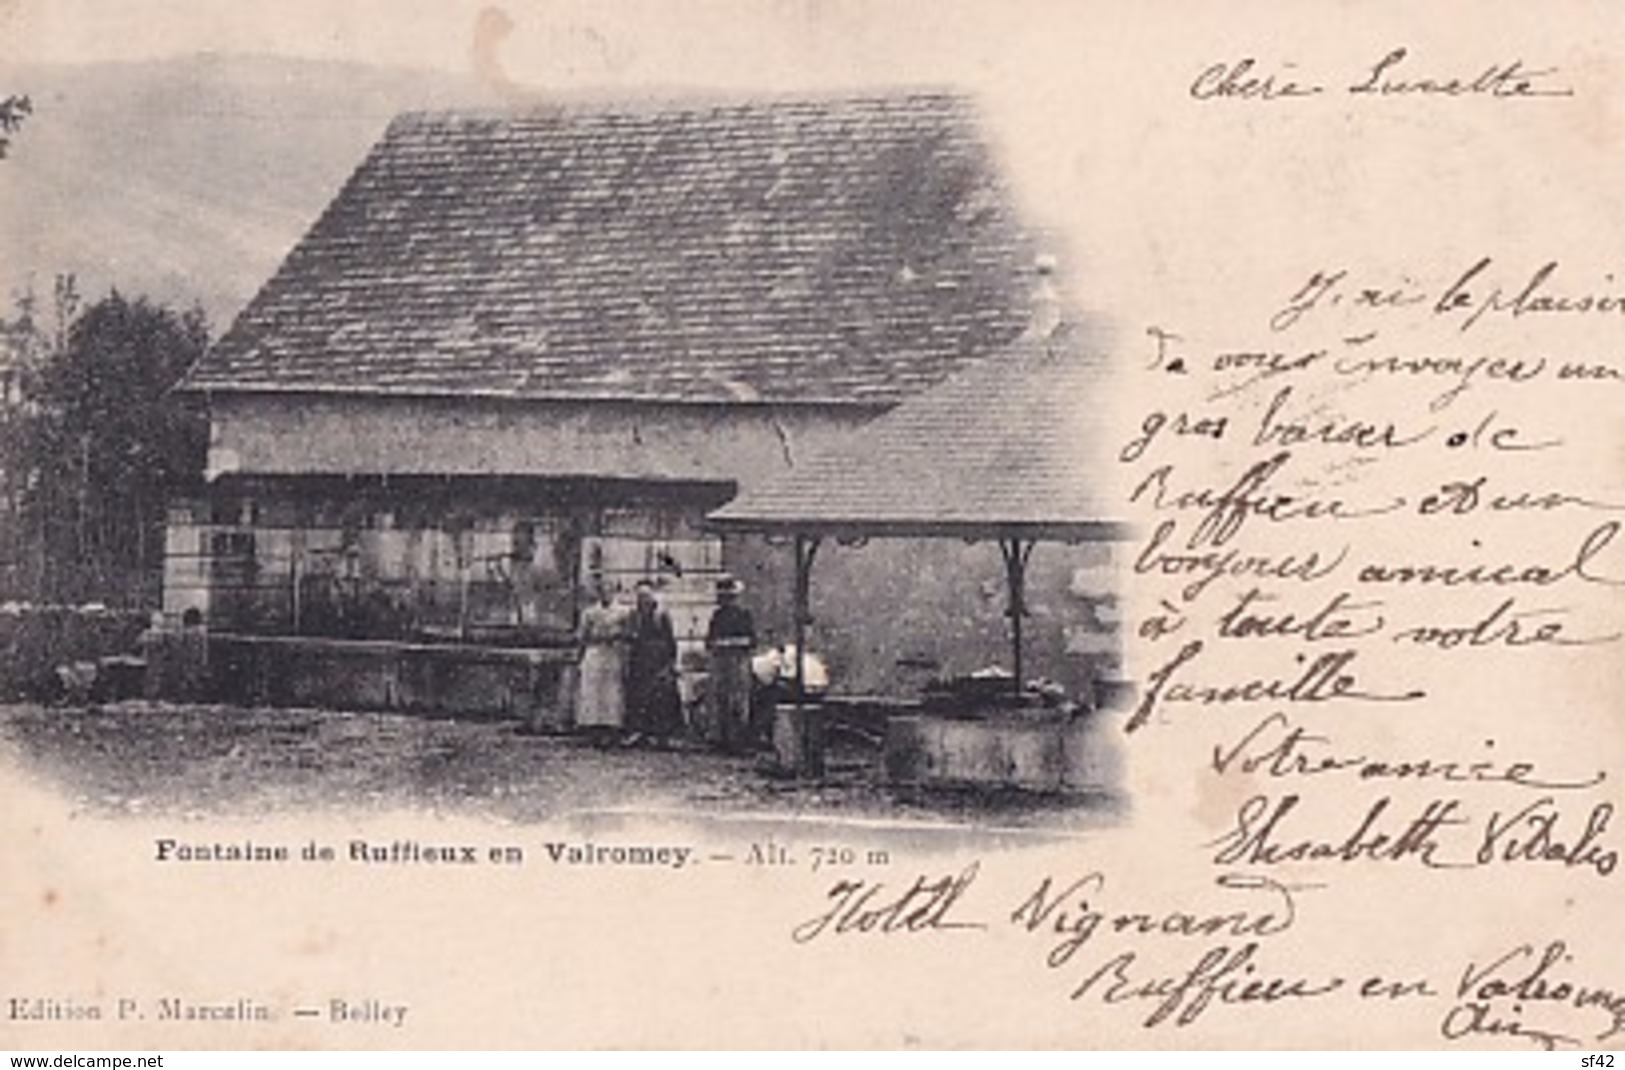 Chère Lucette
J'ai le plaisir
De vous envoyer un
gros baiser de
Ruffieu et un
bonjour amical
à toute votre
famille
Votre amie
Elisabeth Vidalis
Fontaine de Ruffieux en Valromey. — Alt. 720 m
Hotel Vignand
Ruffieu en Valromey
Ain
Edition P. Marcelin. — Belley
www.delcampe.net
sf42